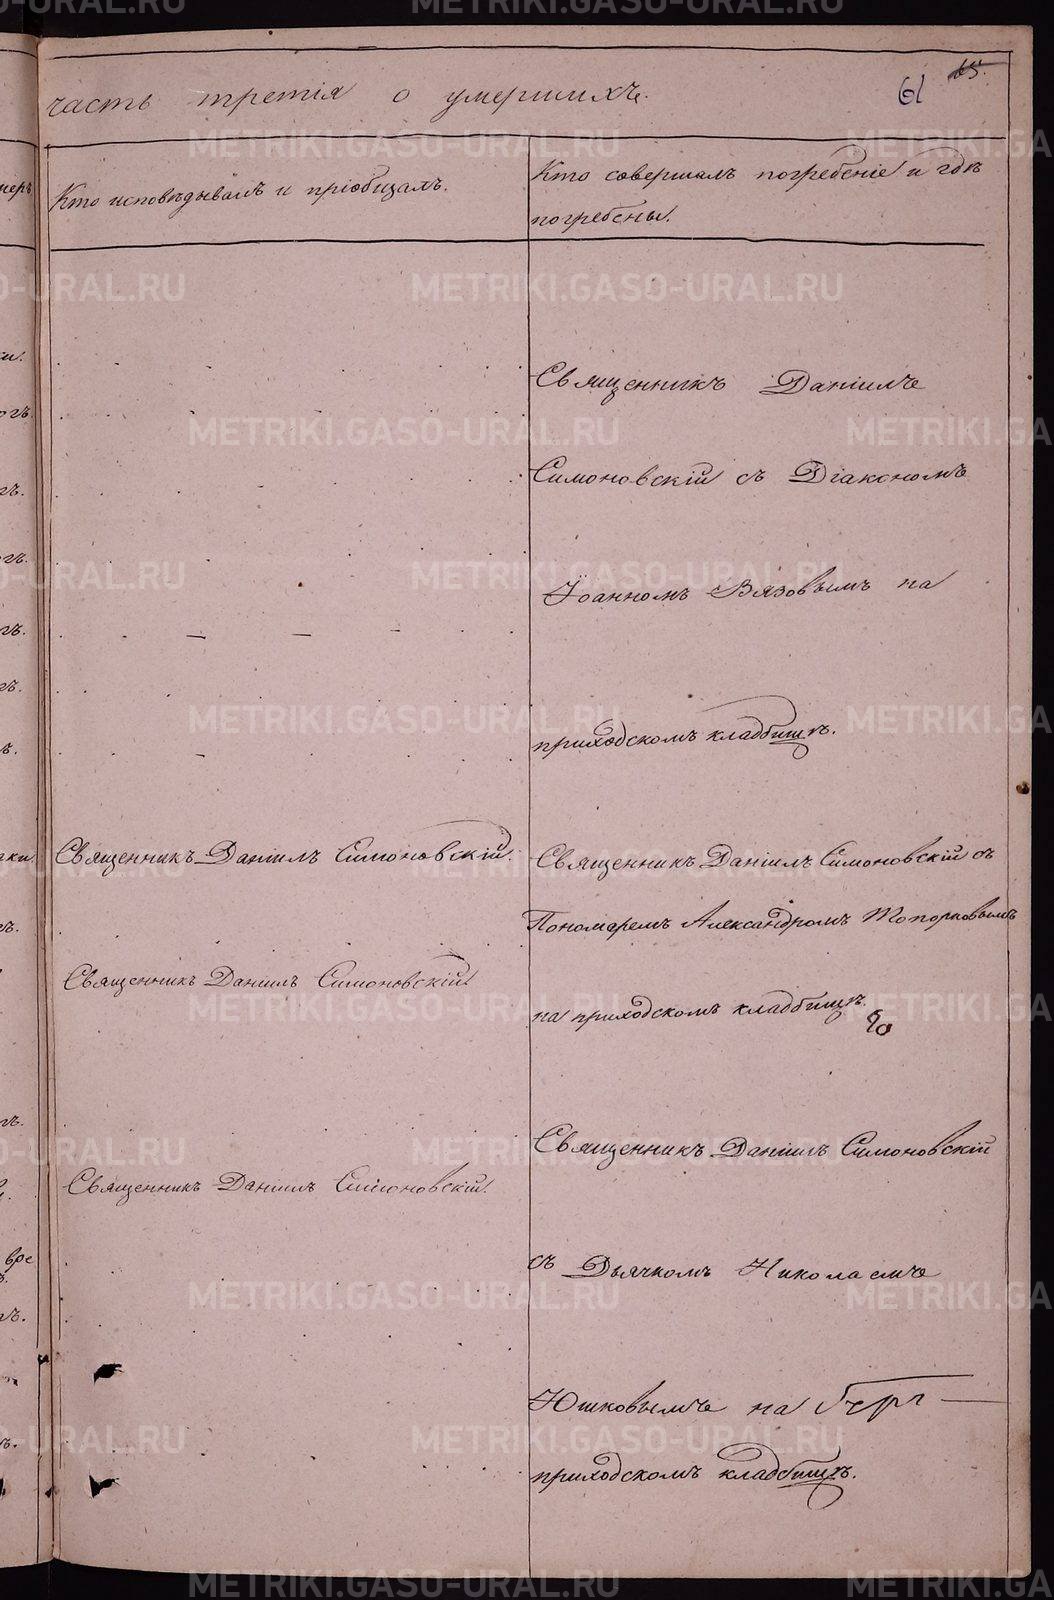 часть третія о умершихъ.
61
65.
Кто исповѣдывалъ и пріобщалъ.
Кто совершалъ погребеніе и гдѣ
погребены.
Священникъ Даніилъ
Симоновскій съ Діакономъ
Іоанномъ Вязовымъ на
приходскомъ кладбищѣ.
Священникъ Даніилъ Симоновскій.
Священникъ Даніилъ Симоновскій съ
Пономаремъ Александромъ Топорковымъ
Священникъ Даніилъ Симоновскій
на приходскомъ кладбищѣ.
Священникъ Даніилъ Симоновскій
Священникъ Даніилъ Симоновскій.
съ Дьячкомъ Николаемъ
Юшковымъ на
приходскомъ кладбищѣ.
METRIKI.GASO-URAL.RU